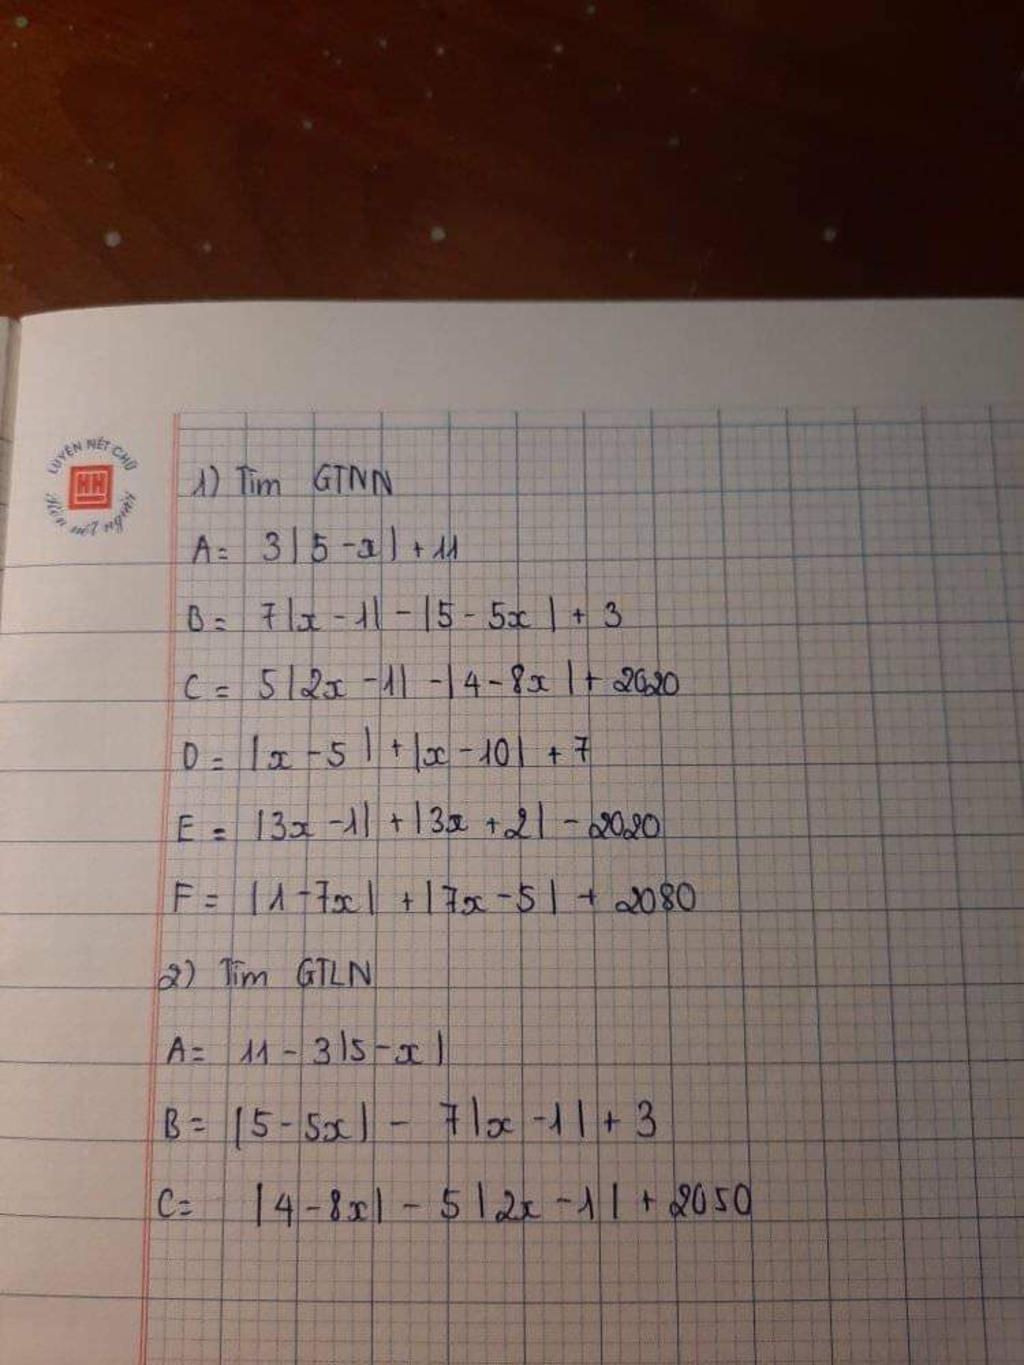 LUYỆN NÉT CHỮ
HH
Rèn nết người
1) Tìm GTNN
A= 3|5-x| + 11
B= 7|x-1| - |5-5x| + 3
C= 5|2x-1| - |4-8x| + 2020
D= |x-5| + |x-10| + 7
E= |3x-1| + |3x+2| - 2020
F= |1-7x| + |7x-5| + 2080
2) Tìm GTLN
A= 11 - 3|5-x|
B= |5-5x| - 7|x-1| + 3
C= |4-8x| - 5|2x-1| + 2050